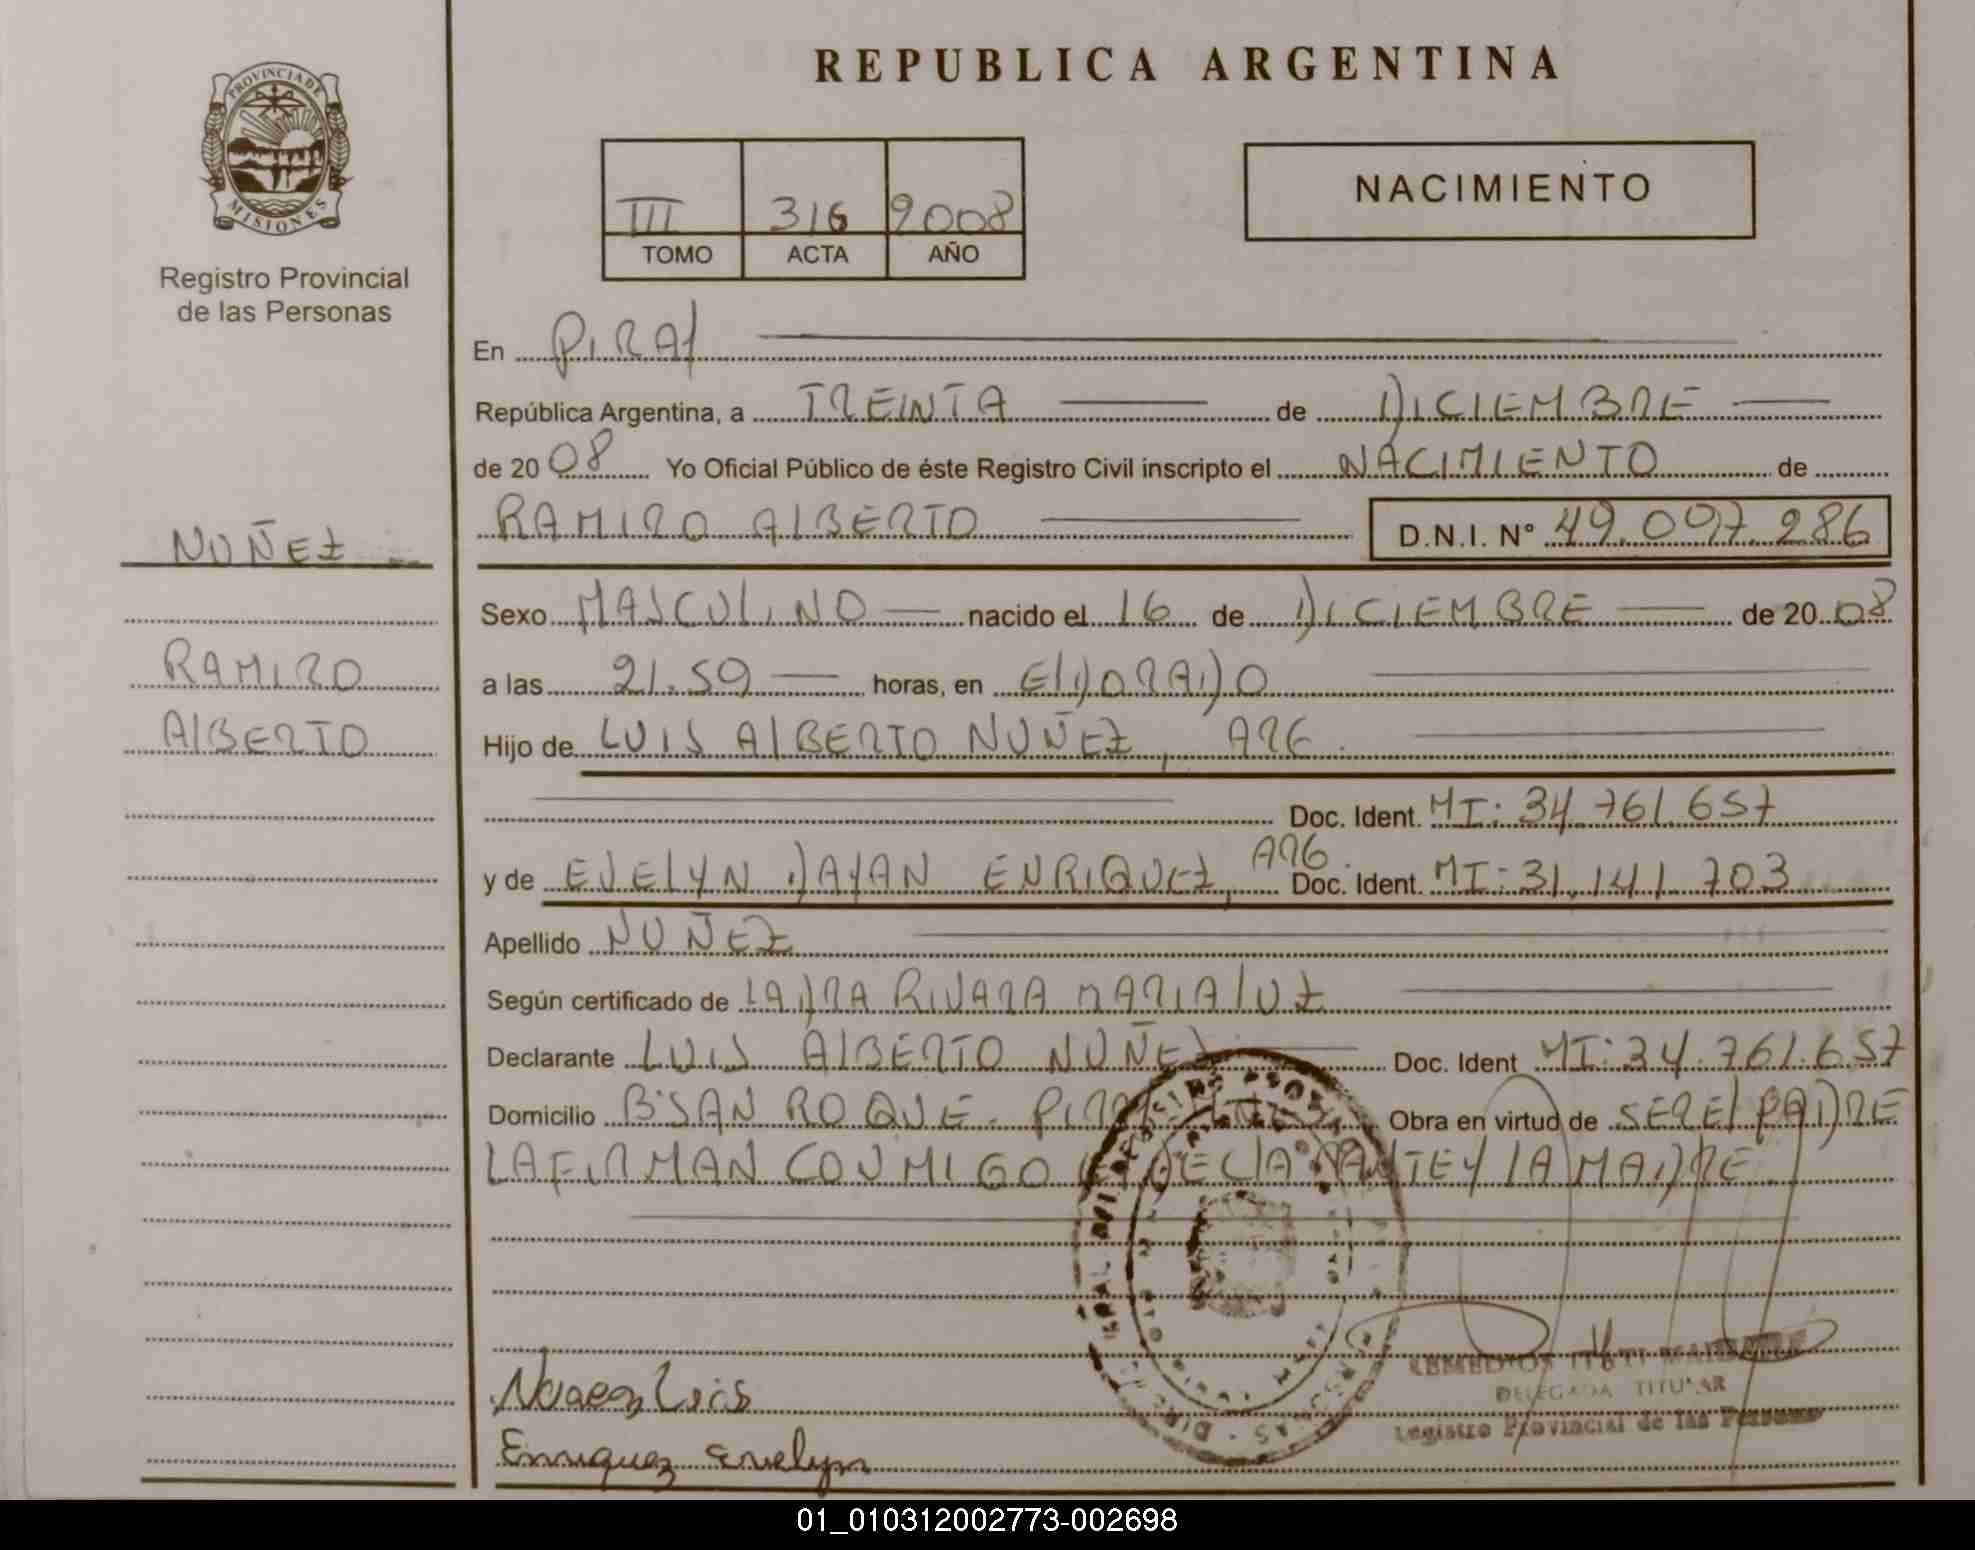 REPUBLICA ARGENTINA
PROVINCIA DE MISIONES
Registro Provincial
de las Personas
III 316 2008
TOMO ACTA AÑO
NACIMIENTO
En PIRAY
República Argentina, a TREINTA de DICIEMBRE
de 2008 Yo Oficial Público de éste Registro Civil inscripto el NACIMIENTO de
RAMIRO ALBERTO D.N.I. N° 49.097.286
NUÑEZ
RAMIRO
ALBERTO
Sexo MASCULINO nacido el 16 de DICIEMBRE de 2008
a las 21.59 horas, en ElDORADO
Hijo de LUIS AlBERTO NUÑEZ, ARG.
Doc. Ident. MI: 34.761.657
y de EVELYN DAYAN ENRIQUEZ, ARG. Doc. Ident. MI: 31.141.703
Apellido NUÑEZ
Según certificado de RIVARA MARIA LUZ
Declarante LUIS AlBERTO NUÑEZ Doc. Ident MI: 34.761.657
Domicilio B° SAN ROQUE - PIRAY Obra en virtud de SER El PADRE
LA FIRMAN CONMIGO El DEClARANTE Y lA MADRE
Nuñez Luis
Enriquez Evelyn
REMEDIOS ITATI
DELEGADA TITULAR
Registro Provincial de las Personas
01_010312002773-002698